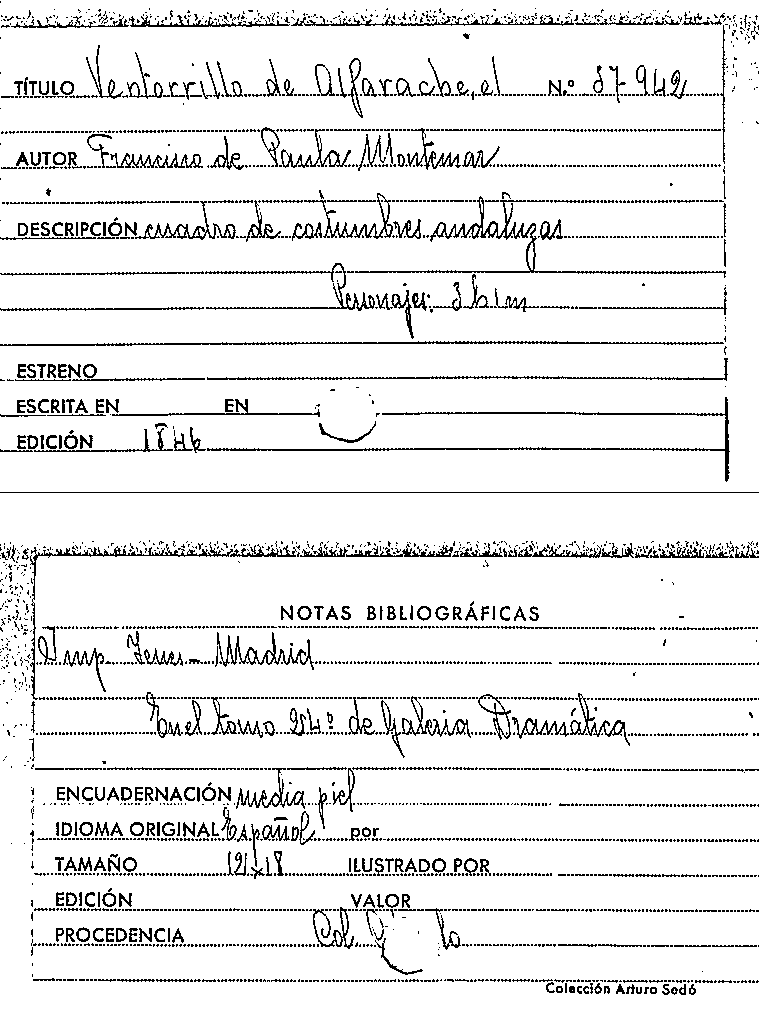 TÍTULO Ventorrillo de Alfarache, el N.º 57-942
AUTOR Francisco de Paula Montemar
DESCRIPCIÓN cuadro de costumbres andaluzas
Personajes: 3 h 1 m
ESTRENO
ESCRITA EN EN
EDICIÓN 1846
NOTAS BIBLIOGRÁFICAS
Imp. Madrid
En el tomo de Galeria Dramática
ENCUADERNACIÓN media piel
IDIOMA ORIGINAL Español por
TAMAÑO ILUSTRADO POR
EDICIÓN VALOR
PROCEDENCIA Col.
Colección Arturo Sedó